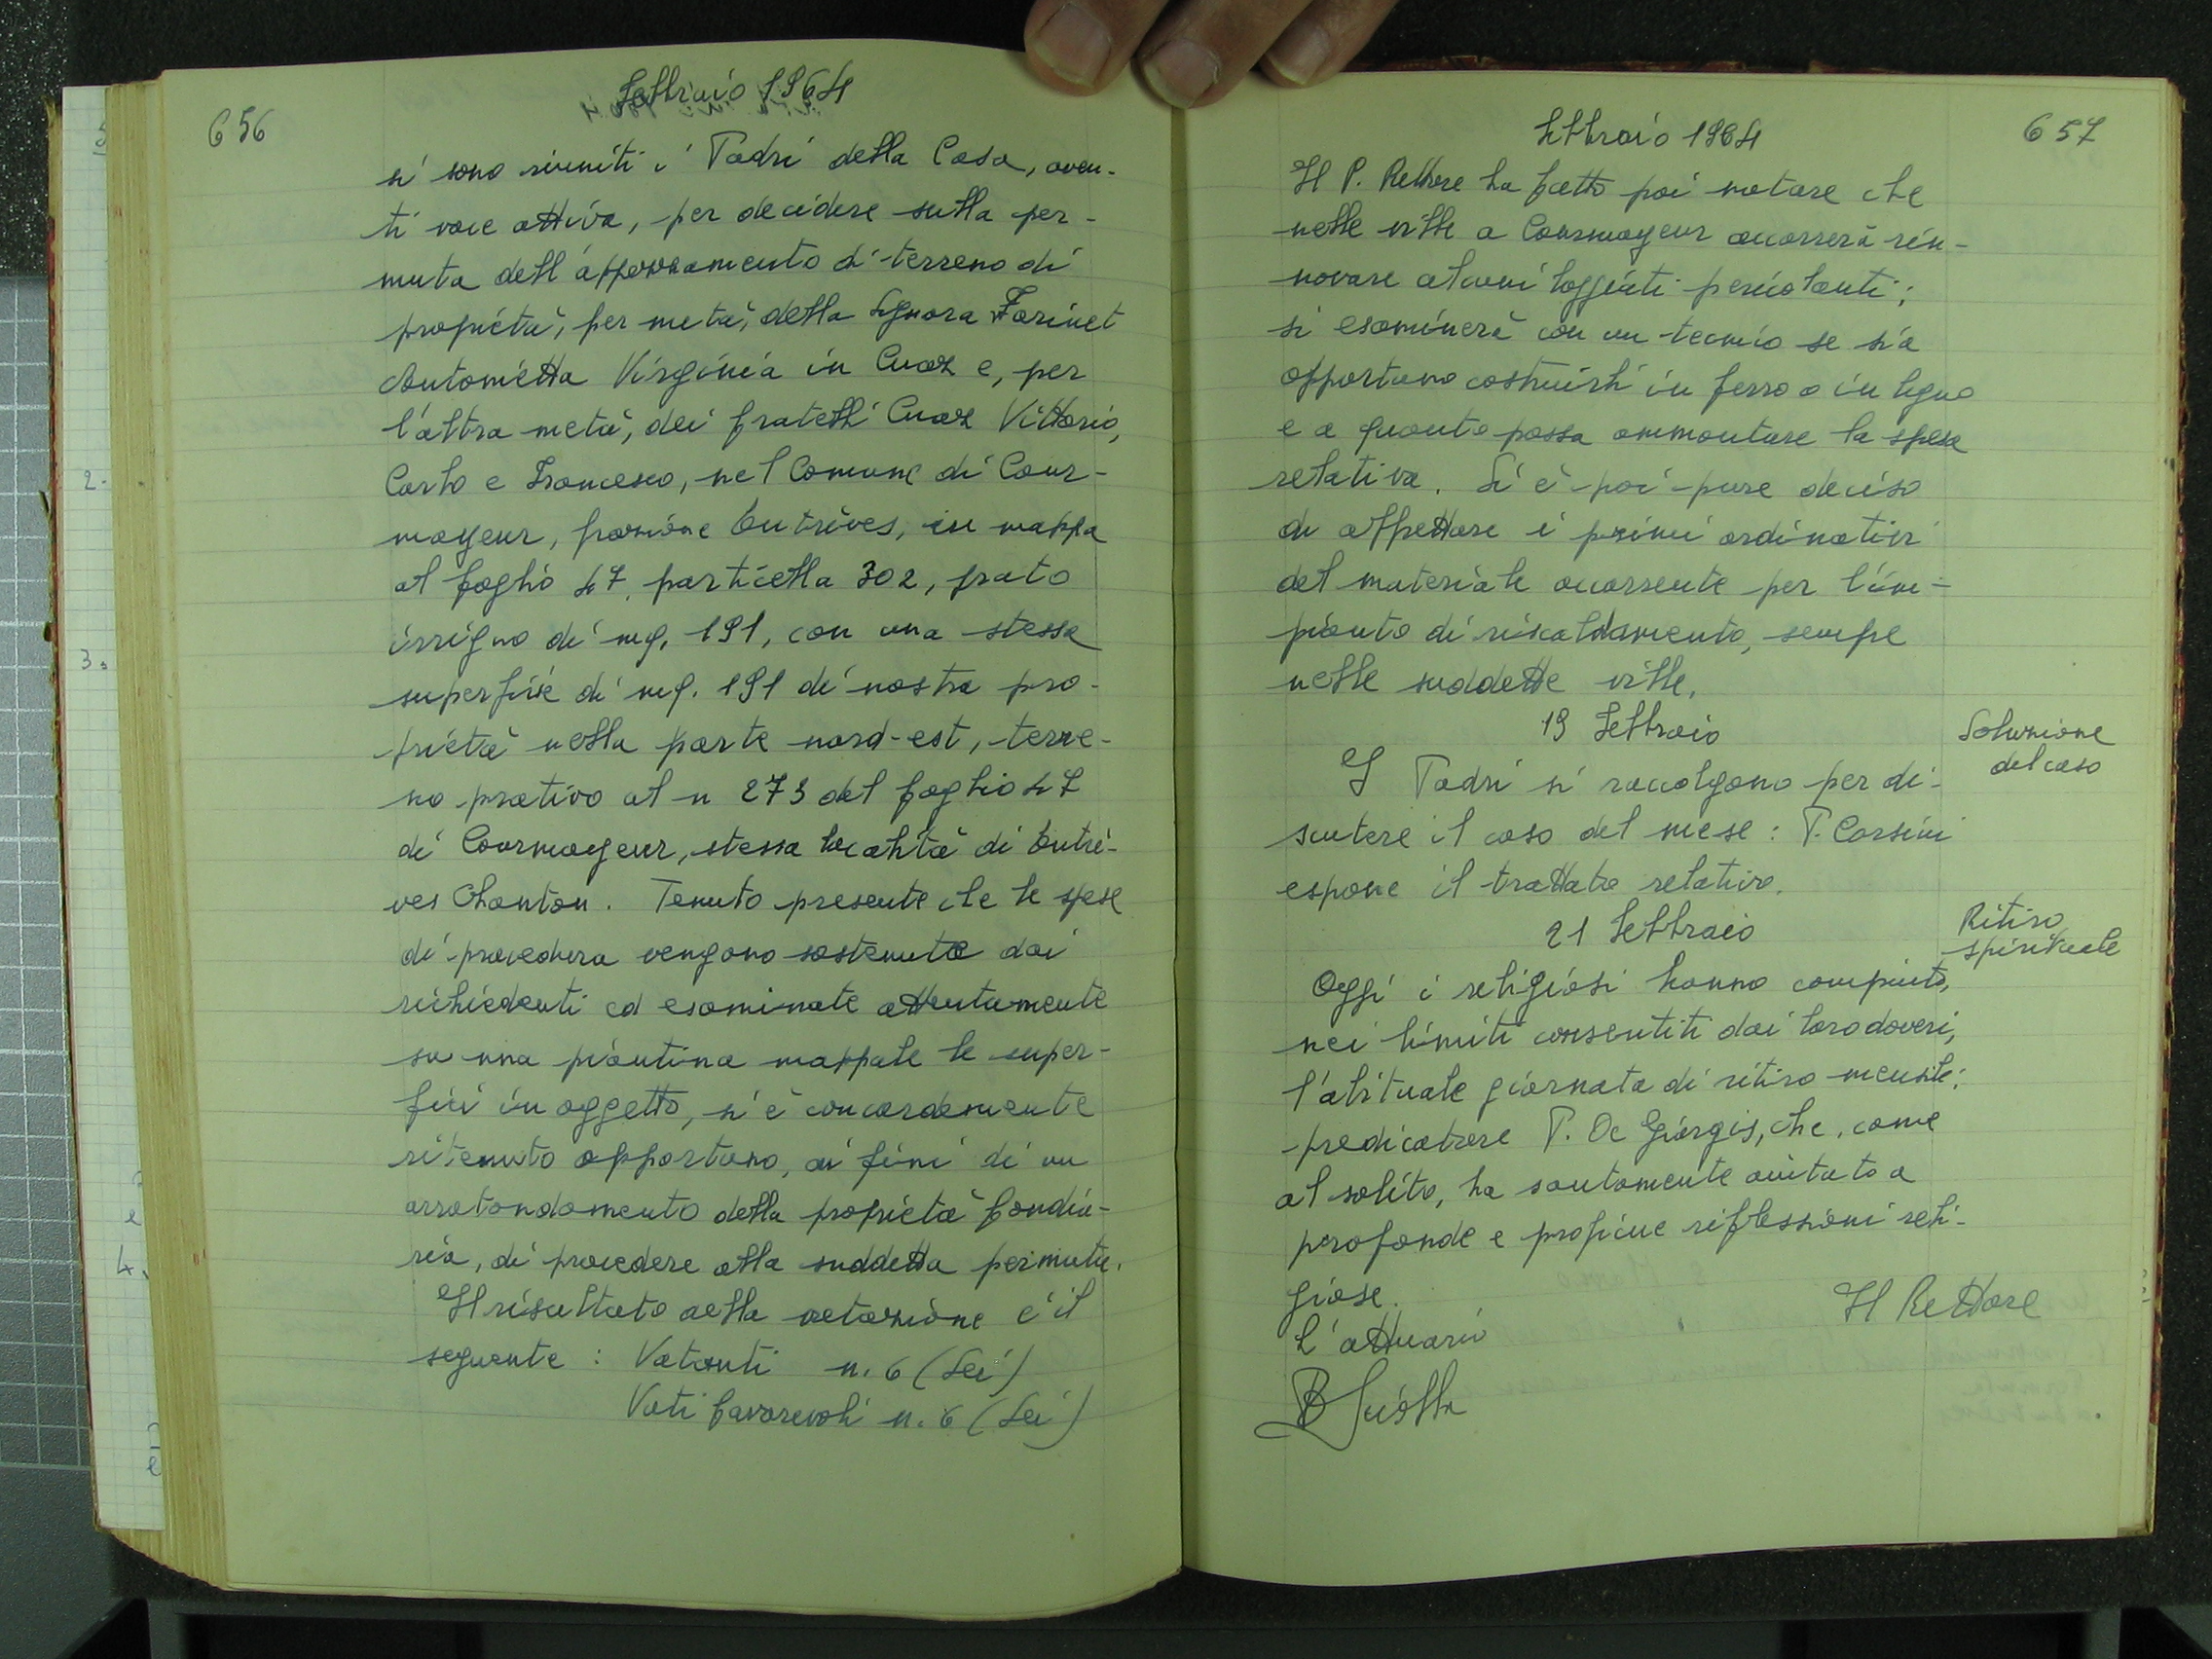 656
Febbraio 1964
si sono riuniti i Padri della Casa, aven-
ti voce attiva, per decidere sulla per-
muta dell'appezzamento di terreno di
proprietà, per metà, della Signora Farinet
Antonietta Virginia in Cuaz e, per
l'altra metà, dei fratelli Cuaz Vittorio,
Carlo e Francesco, nel Comune di Cour-
mayeur, frazione Entrèves, in mappa
al foglio 47, particella 302, prato
irriguo di mq. 191, con una stessa
superficie di mq. 191 di nostra pro-
prietà nella parte nord-est, terre-
no prativo al n 273 del foglio 47
di Courmayeur, stessa località di Entrè-
ves Chanton. Tenuto presente che le spese
di procedura vengono sostenute dai
richiedenti ed esaminate attentamente
su una piantina mappale le super-
fici in oggetto, si è concordemente
ritenuto opportuno, ai fini di un
arrotondamento della proprietà fondia-
ria, di procedere alla suddetta permuta.
Il risultato della votazione è il
seguente: Votanti n. 6 (Sei)
Voti favorevoli n. 6 (Sei)
2.
3.
4.
Febbraio 1964
657
Il P. Rettore ha fatto poi notare che
nelle ville a Courmayeur occorrerà rin-
novare alcuni loggiati pericolanti;
si esaminerà con un tecnico se sia
opportuno costruirli in ferro o in legno
e a quanto possa ammontare la spesa
relativa. Si è poi pure deciso
di affrettare i primi ordinativi
del materiale occorrente per l'im-
pianto di riscaldamento, sempre
nelle suddette ville.
19 Febbraio
Soluzione
del caso
I Padri si raccolgono per di-
scutere il caso del mese: P. Corsini
espone il trattato relativo.
21 Febbraio
Ritiro
spirituale
Oggi i religiosi hanno compiuto,
nei limiti consentiti dai loro doveri,
l'abituale giornata di ritiro mensile:
predicatore P. De Giorgis, che, come
al solito, ha santamente aiutato a
profonde e proficue riflessioni reli-
giose.
Il Rettore
L'attuario